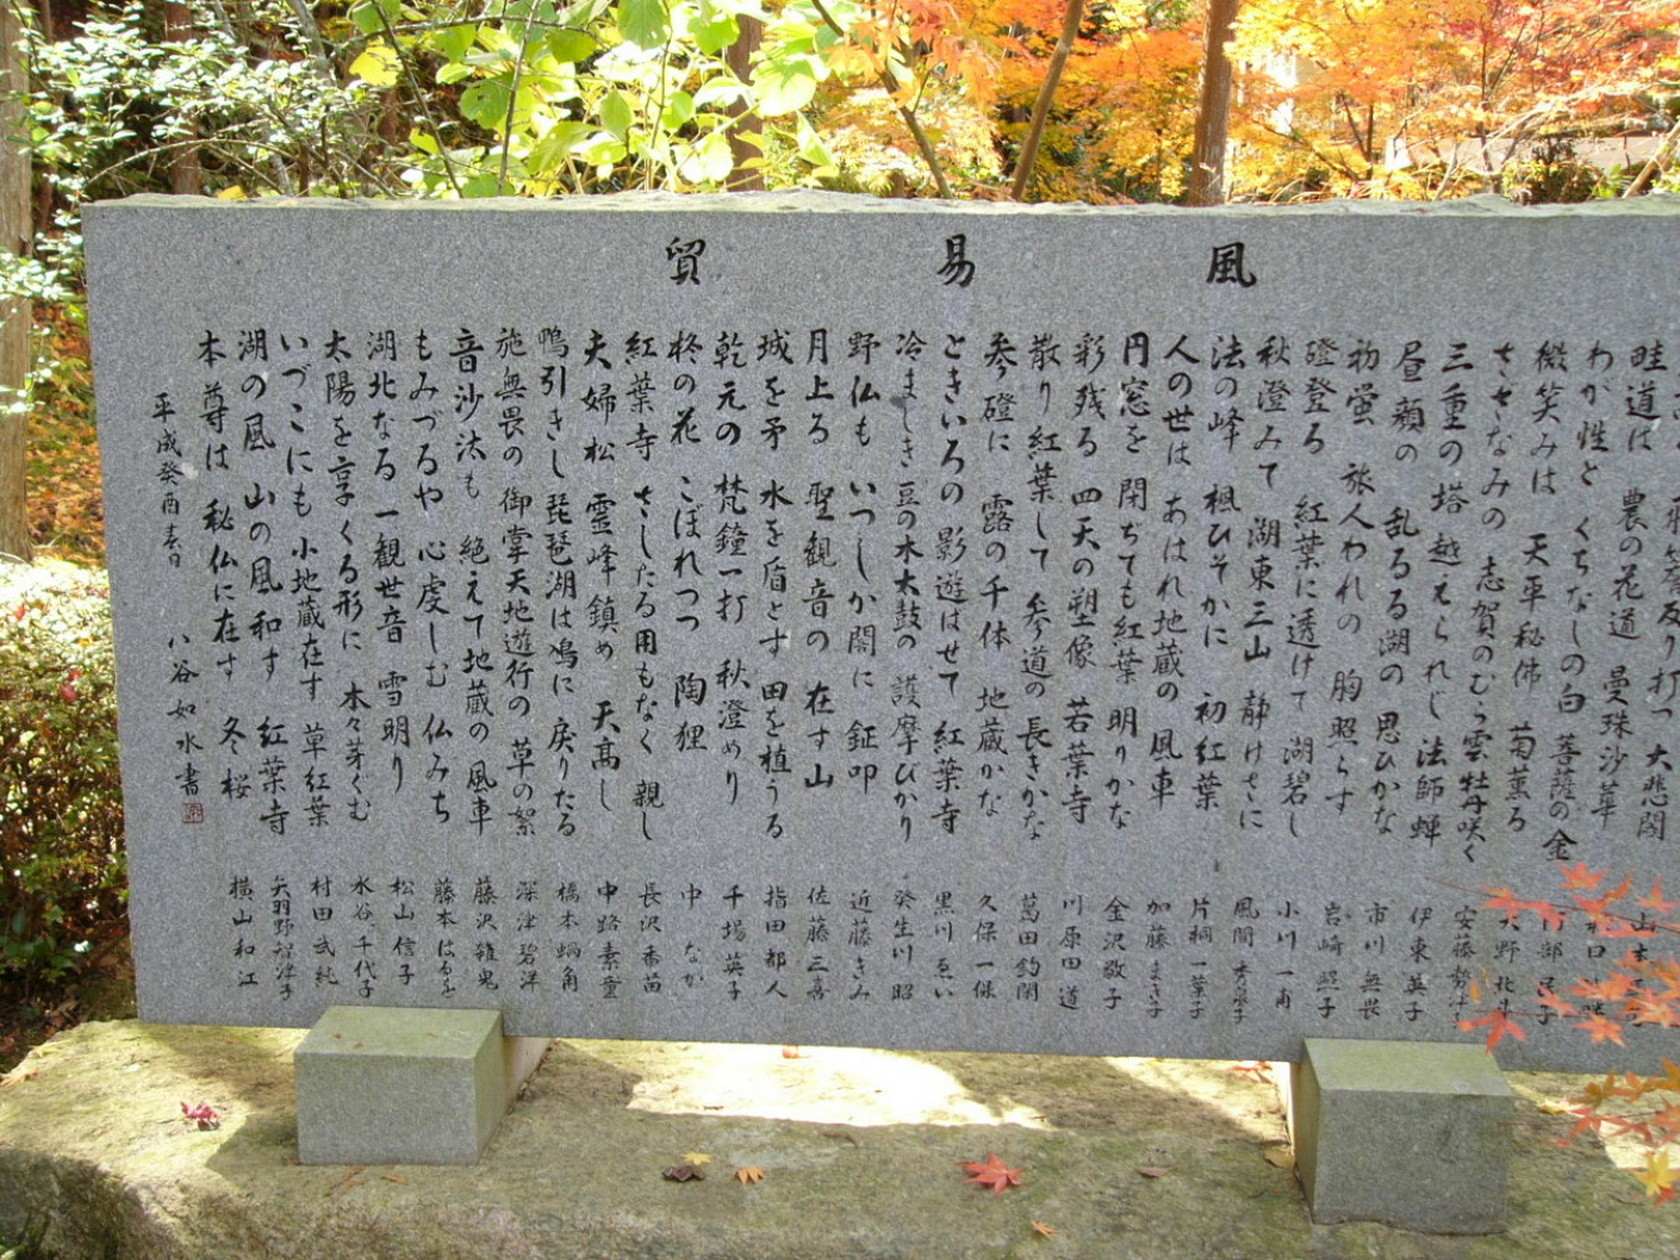 風 易 貿
畦道は 農の花道 曼珠沙華
わが性と くちなしの白 菩薩の金
微笑みは 天平秘佛 菊薫る
さざなみの 志賀のむら雲 牡丹咲く
三重の塔 越えられじ 法師蝉
昼顔の 乱るる湖の 思ひかな
初蛍 旅人われの 胸照らす
磴登る 紅葉に透けて 湖碧し
秋澄みて 湖東三山 静けさに
法の峰 楓ひそかに 初紅葉
人の世は あはれ地蔵の 風車
円窓を 閉ぢても紅葉 明りかな
彩残る 四天の塑像 若葉寺
散り紅葉して 参道の 長きかな
参磴に 露の千体 地蔵かな
ときいろの 影遊ばせて 紅葉寺
冷まじき 豆の木太鼓の 護摩びかり
野仏も いつしか闇に 鉦叩
月上る 聖観音の 在す山
城を矛 水を盾とす 田を植うる
乾元の 梵鐘一打 秋澄めり
柊の花 こぼれつつ 陶狸
紅葉寺 さしたる用もなく 親し
夫婦松 霊峰鎮め 天高し
鴨引きし 琵琶湖は鳰に 戻りたる
施無畏の 御掌天地遊行の 草の絮
音沙汰も 絶えて地蔵の 風車
もみづるや 心虔しむ 仏みち
湖北なる 一観世音 雪明り
太陽を享くる形に 木々芽ぐむ
いづこにも 小地蔵在す 草紅葉
湖の風 山の風和す 紅葉寺
本尊は 秘仏に在す 冬桜
平成癸酉春日 八谷如水書
安藤勢津子
伊東英子
市川無畏
岩崎照子
小川一甫
風間秀泉子
片桐一葉子
加藤まき子
金沢敬子
川原田道
葛田釣閑
久保一保
黒川ゑい
癸生川昭
近藤きみ
佐藤三喜
指田都人
千場英子
中なか
長沢香苗
中路素童
橋本蝸角
深津碧洋
藤沢雛鬼
藤本はるを
松山信子
水谷千代子
村田武純
矢羽野智津子
横山和江